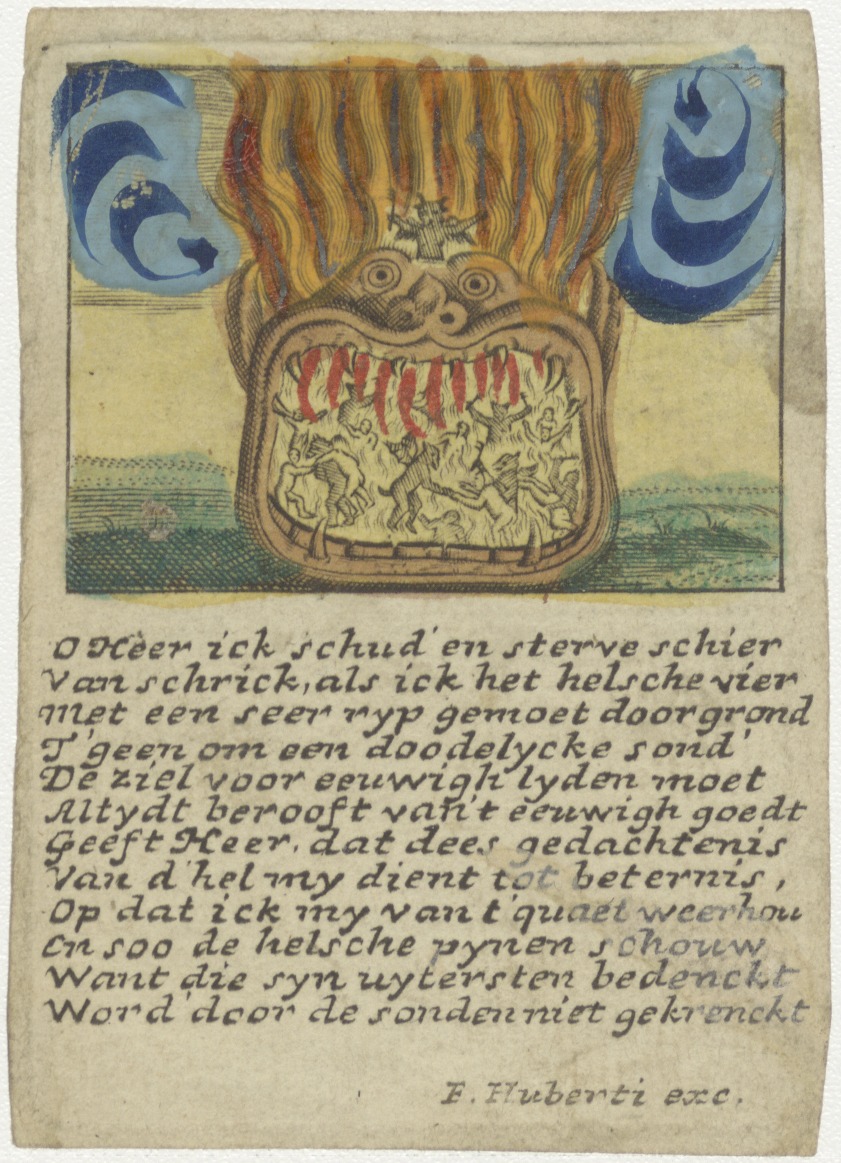 O Heer ick schud' en sterve schier
Van schrick, als ick het helsche vier
Met een seer ryp gemoet doorgrond
T'geen om een doodelycke sond'
De ziel voor eeuwigh lyden moet
Altydt berooft van't eeuwigh goedt
Geeft Heer, dat dees gedachtenis
Van d'hel my dient tot beternis,
Op dat ick my van t'quaet weerhou
En soo de helsche pynen schouw
Want die syn uytersten bedenckt
Word' door de sonden niet gekrenckt
F. Huberti exc.